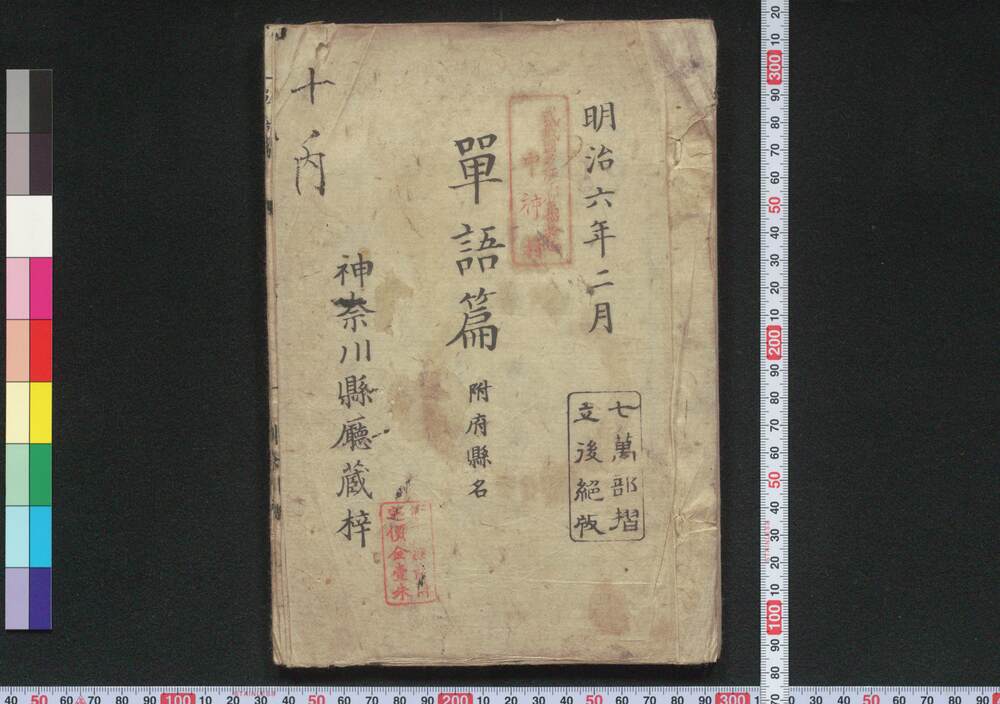 明治六年二月
七萬部摺
立後絕版
單語篇
附府縣名
神奈川縣廳蔵梓
定價金壹朱
十
丙